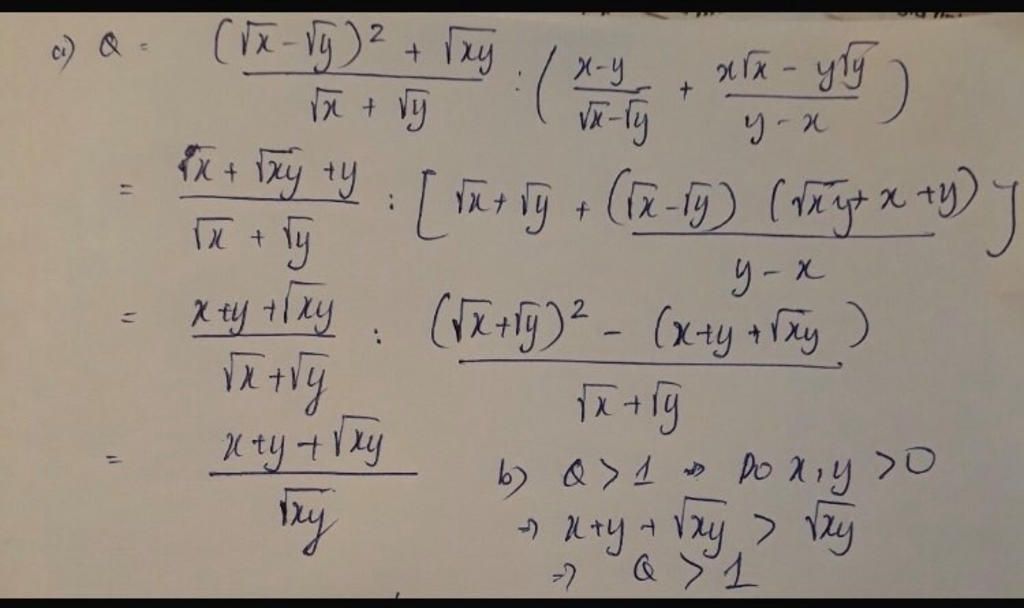 a) Q = ((√x - √y)² + √xy) / (√x + √y) : ( (x-y) / (√x-√y) + (x√x - y√y) / (y - x) )
= (√x + √xy + y) / (√x + √y) : [ √x + √y + (√x-√y) (√xy + x + y) / (y - x) ]
= (x+y+√xy) / (√x+√y) : ((√x+√y)² - (x+y+√xy)) / (√x+√y)
= (x+y+√xy) / √xy
b) Q > 1 => Do x, y > 0
=> x+y+√xy > √xy
=> Q > 1